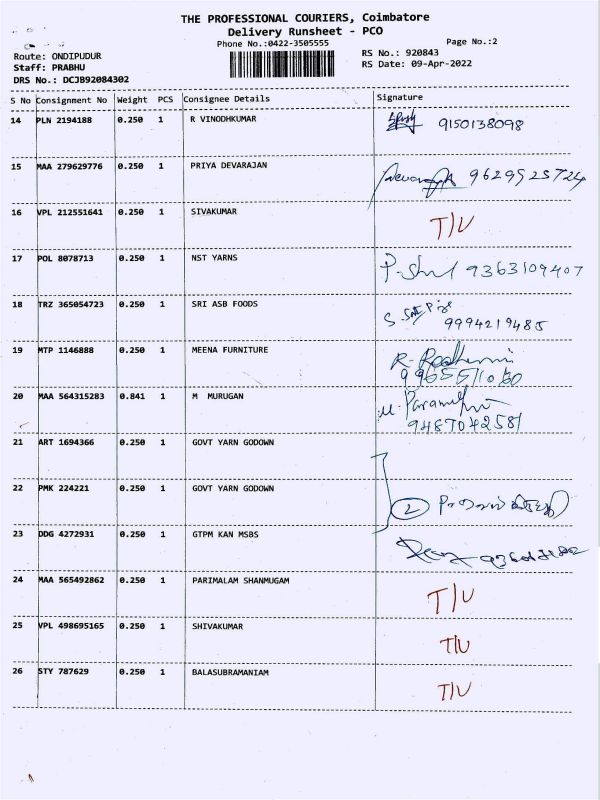 THE PROFESSIONAL COURIERS, Coimbatore
Delivery Runsheet - PCO
Phone No.:0422-3505555
Page No.:2
Route: ONDIPUDUR
RS No.: 920843
Staff: PRABHU
RS Date: 09-Apr-2022
DRS No.: DCJB92084302
S No Consignment No Weight PCS Consignee Details Signature
14 PLN 2194188 0.250 1 R VINODHKUMAR 9150138098
15 MAA 279629776 0.250 1 PRIYA DEVARAJAN
16 VPL 212551641 0.250 1 SIVAKUMAR T/U
17 POL 8078713 0.250 1 NST YARNS 9363109407
18 TRZ 365054723 0.250 1 SRI ASB FOODS
9994219485
19 MTP 1146888 0.250 1 MEENA FURNITURE
20 MAA 564315283 0.841 1 M MURUGAN
9487042581
21 ART 1694366 0.250 1 GOVT YARN GODOWN
22 PMK 224221 0.250 1 GOVT YARN GODOWN 2
23 DDG 4272931 0.250 1 GTPM KAN MSBS
24 MAA 565492862 0.250 1 PARIMALAM SHANMUGAM T/U
25 VPL 498695165 0.250 1 SHIVAKUMAR T/U
26 STY 787629 0.250 1 BALASUBRAMANIAM T/U